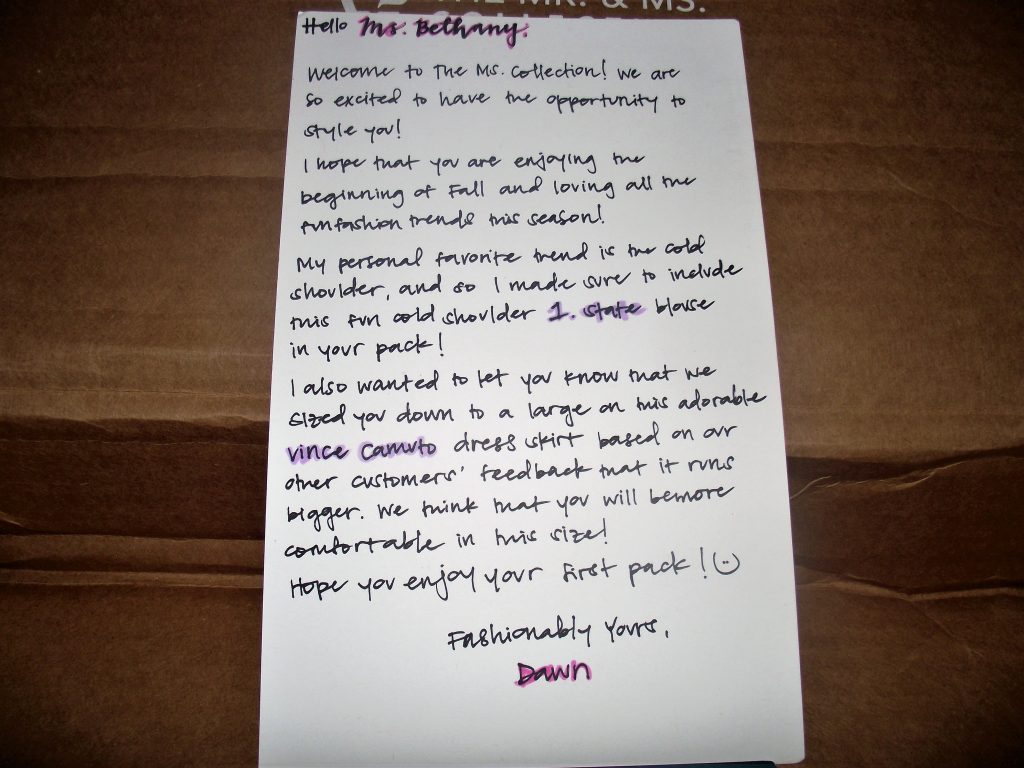 THE MR. & MS.
Hello Ms. Bethany.
Welcome to The Ms. Collection! We are
so excited to have the opportunity to
style you!
I hope that you are enjoying the
beginning of Fall and loving all the
fun fashion trends this season!
My personal favorite trend is the cold
shoulder, and so I made sure to include
this fun cold shoulder 1. state blouse
in your pack!
I also wanted to let you know that we
sized you down to a large on this adorable
vince camuto dress skirt based on our
other customers' feedback that it runs
bigger. We think that you will be more
comfortable in this size!
Hope you enjoy your first pack! :)
Fashionably Yours,
Dawn